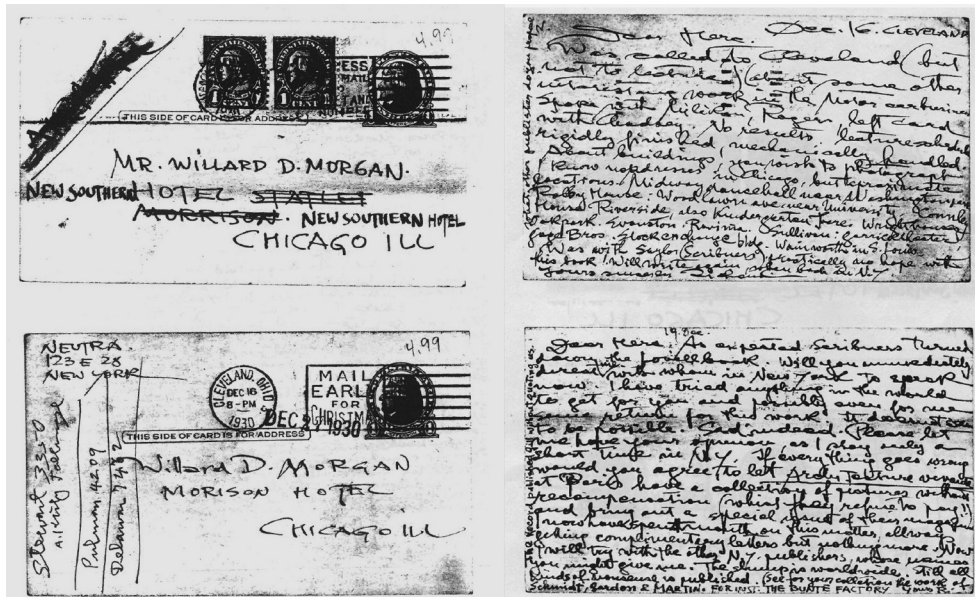 4.99
THIS SIDE OF CARD IS FOR ADDRESS
MR. WILLARD D. MORGAN.
NEW SOUTHERN HOTEL STATLER
MORRISON. NEW SOUTHERN HOTEL
CHICAGO ILL
Dear Herc. Dec. 16. CLEVELAND
Was called to Cleveland (but
not to lecture) about some other
interesting work in the Motor carbusiness
Spoke with Lilian, Rogers, left card
with Chudley. No results, but
rigidly finished, mechanically handled.
About buildings, you wish to photograph
I know not adresses in Chicago, but approximate
locations: Midway dancehall near Washington park
Robby House: Woodlawn ave near University. Coonly
House Riverside, also Kindergarten there. Wright houses
Oakpark. Evanston. Ravinia. Sullivan: Garricktheater
Gage Bros. Stockexchange bldg. Wainworth in S. Louis
Was with Saylor (Scribners) practically no hope with
his book! Will write again when back in N.Y.
Yours
NEUTRA
123 E 28
NEW YORK
4.99
CLEVELAND, OHIO
DEC 16
8-PM
1930
MAIL
EARLY
FOR
CHRISTMAS
DEC 1930
THIS SIDE OF CARD IS FOR ADDRESS
Willard D. MORGAN
MORISON HOTEL
CHICAGO ILL
Stewart 33-0
Pulman 4209
Delaware 7462
19. Dec.
Dear Herc. As expected Scribners turned
down the book. Will you immediately
direct with whom in New York to speak
now. I have tried anything in the world
to get for you and possibly even for me
some for this work. It does not seem
to be possible. Sad indeed. Please let
me have your opinion, as I stay only a
short time in N.Y. If everything goes wrong
would you agree to let Architecture vivante
at Paris have a collection of pictures without
recompensation (which they refuse to pay!)
and bring out a special issue of they magazine
I now have spent month on this matter, allways
getting complimentary letters but nothing more. Now
I will try with the other N.Y. publishers, whose names
you might give me. The slump is worldwide, still all
kinds of nonsense is published. (See for your collection the work of
Schmidt, Gardon & MARTIN. FOR INST: THE BUNTE FACTORY Yours R.